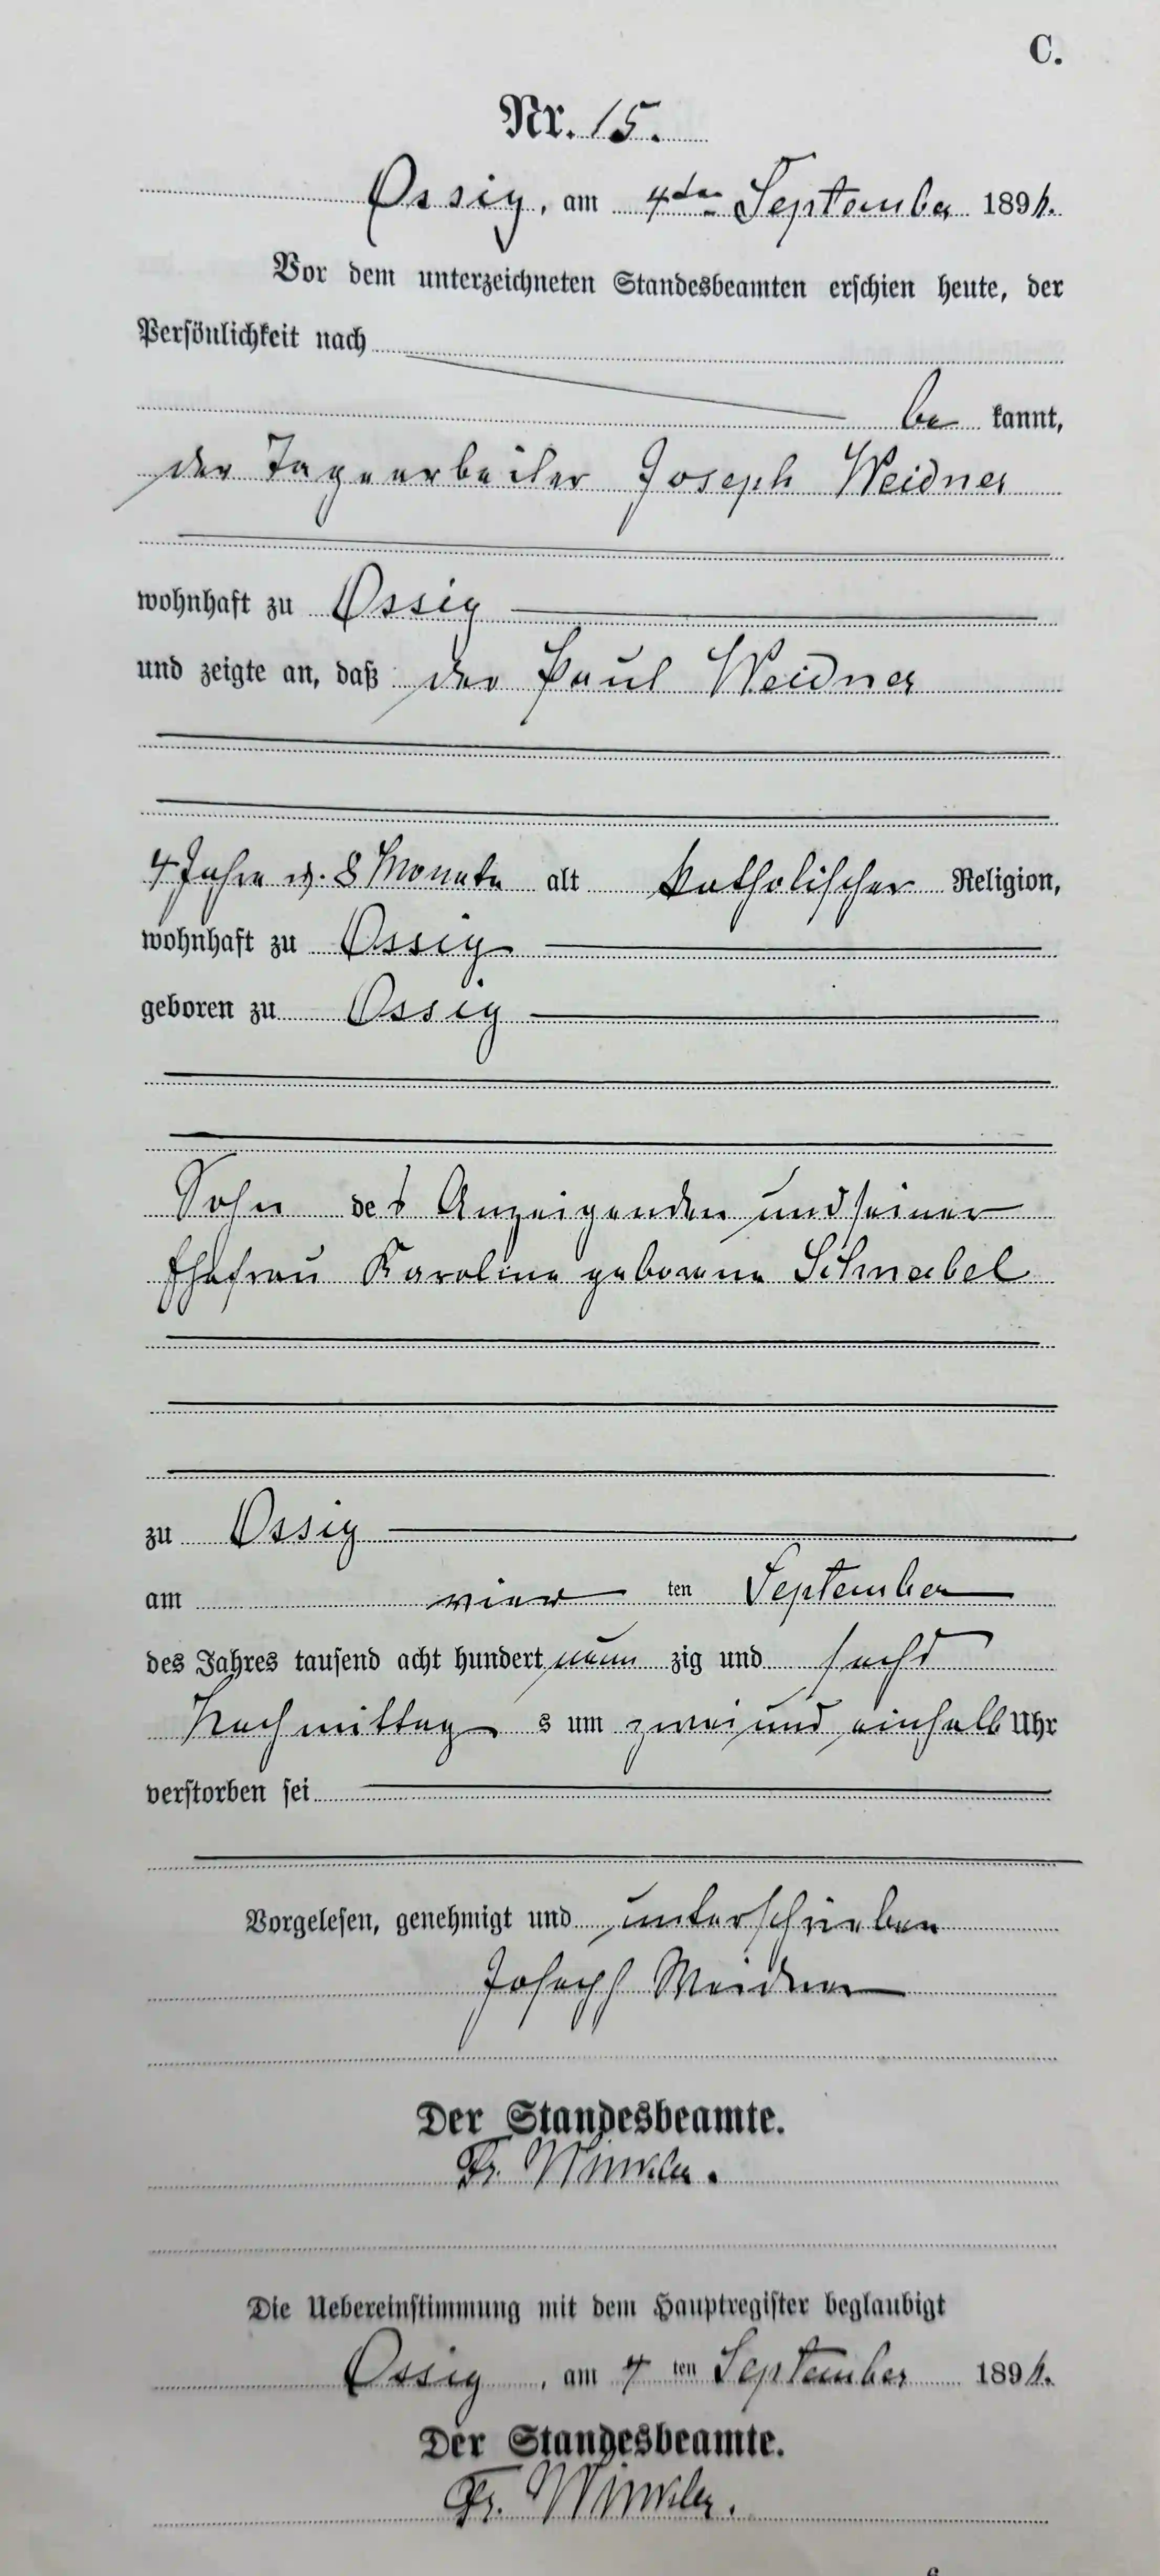 C.
Nr. 15.
Ossig, am 4ten September 1896.
Vor dem unterzeichneten Standesbeamten erschien heute, der
Persönlichkeit nach
be kannt,
der Tagearbeiter Joseph Weidner
wohnhaft zu Ossig
und zeigte an, daß der Paul Weidner
4 Jahre u. 8 Monate alt katholischer Religion,
wohnhaft zu Ossig
geboren zu Ossig
Sohn des Anzeigenden und seiner
Ehefrau Karoline geborene Schnabel
zu Ossig
am vier ten September
des Jahres tausend acht hundert neun zig und sechs
Nachmittag s um zwei und einhalb Uhr
verstorben sei
Vorgelesen, genehmigt und unterschrieben
Joseph Weidner
Der Standesbeamte.
Fr. Winkler.
Die Uebereinstimmung mit dem Hauptregister beglaubigt
Ossig, am 4 ten September 1896.
Der Standesbeamte.
Fr. Winkler.